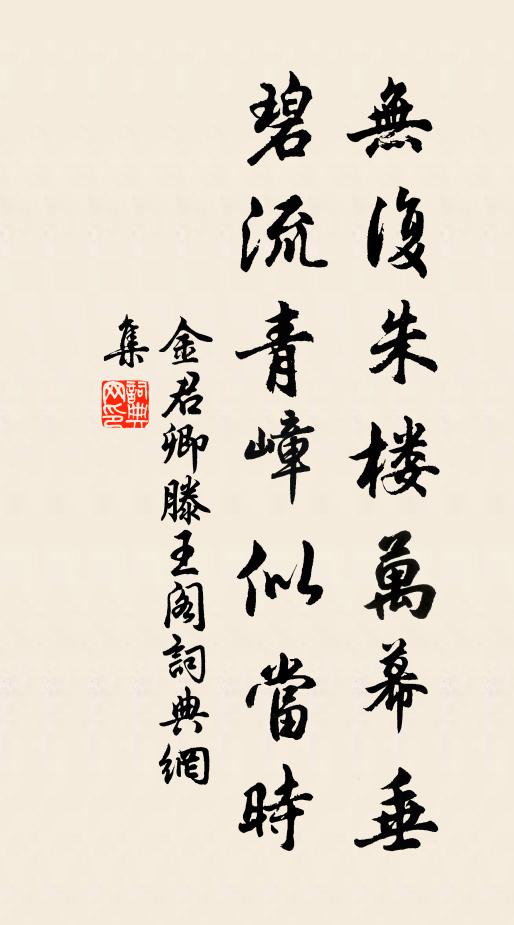 無復朱楼萬幕垂
碧流青嶂似當時
金君卿滕王阁詞典網
集
詞典
网印